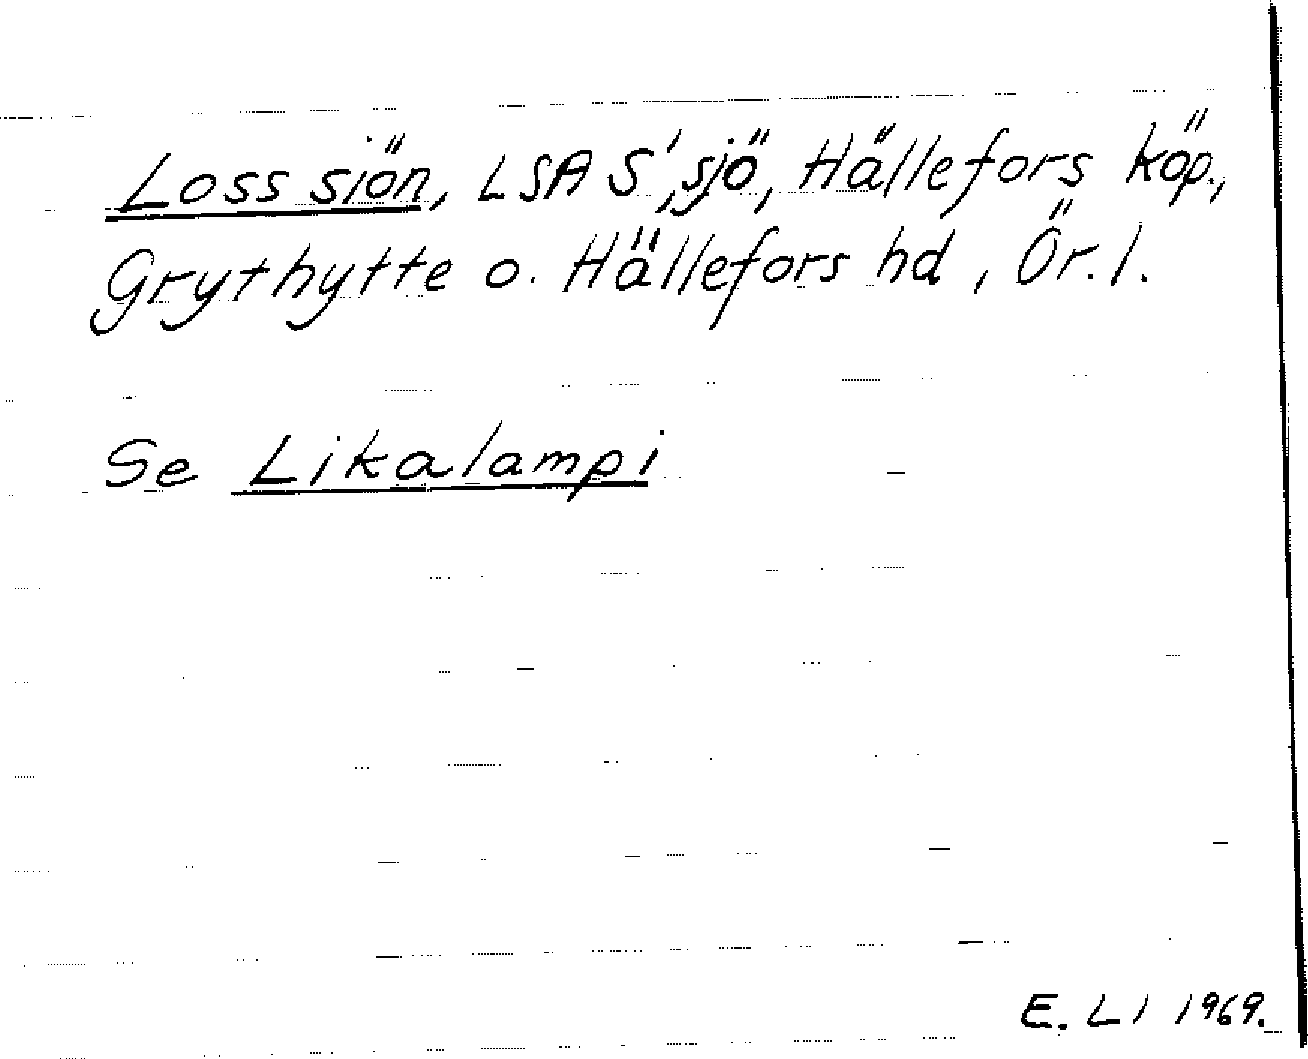 Loss sjön, LSA S', sjö, Hällefors köp.,
Grythytte o. Hällefors hd, Ör. l.
Se Likalampi
E. LI 1969.